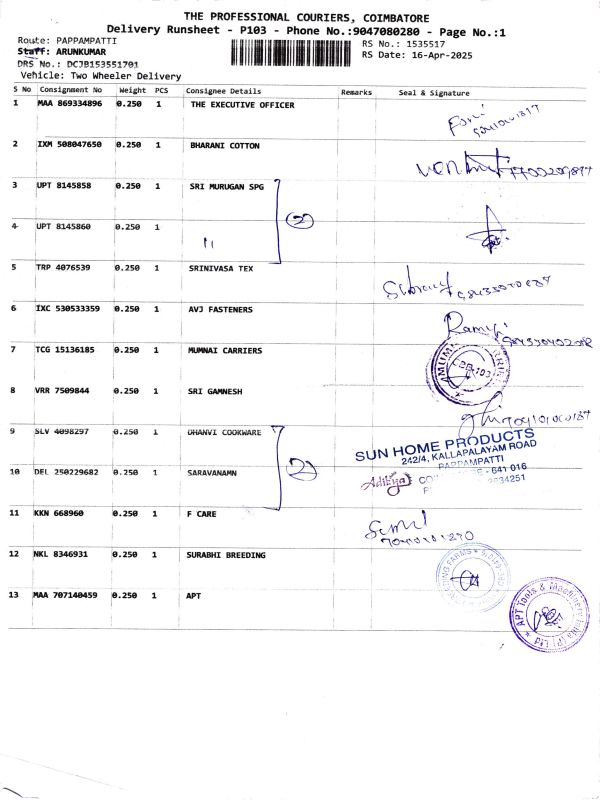 THE PROFESSIONAL COURIERS, COIMBATORE
Delivery Runsheet - P103 - Phone No.:9047080280 - Page No.:1
Route: PAPPAMPATTI
RS No.: 1535517
Staff: ARUNKUMAR
RS Date: 16-Apr-2025
DRS No.: DCJB153551701
Vehicle: Two Wheeler Delivery
S No Consignment No Weight PCS Consignee Details Remarks Seal & Signature
1 MAA 869334896 0.250 1 THE EXECUTIVE OFFICER
2 IXM 508047650 0.250 1 BHARANI COTTON
3 UPT 8145858 0.250 1 SRI MURUGAN SPG
2
4 UPT 8145860 0.250 1 "
5 TRP 4076539 0.250 1 SRINIVASA TEX
6 IXC 530533359 0.250 1 AVJ FASTENERS
7 TCG 15136185 0.250 1 MUMNAI CARRIERS
8 VRR 7509844 0.250 1 SRI GAMNESH
9 SLV 4098297 0.250 1 DHANVI COOKWARE
2
SUN HOME PRODUCTS
242/4, KALLAPALAYAM ROAD
PAPPAMPATTI
641 016
10 DEL 250229682 0.250 1 SARAVANAMN
Adithya
34251
11 KKN 668960 0.250 1 F CARE
12 NKL 8346931 0.250 1 SURABHI BREEDING
13 MAA 707140459 0.250 1 APT
APT Tools & Machinery India (P) Ltd